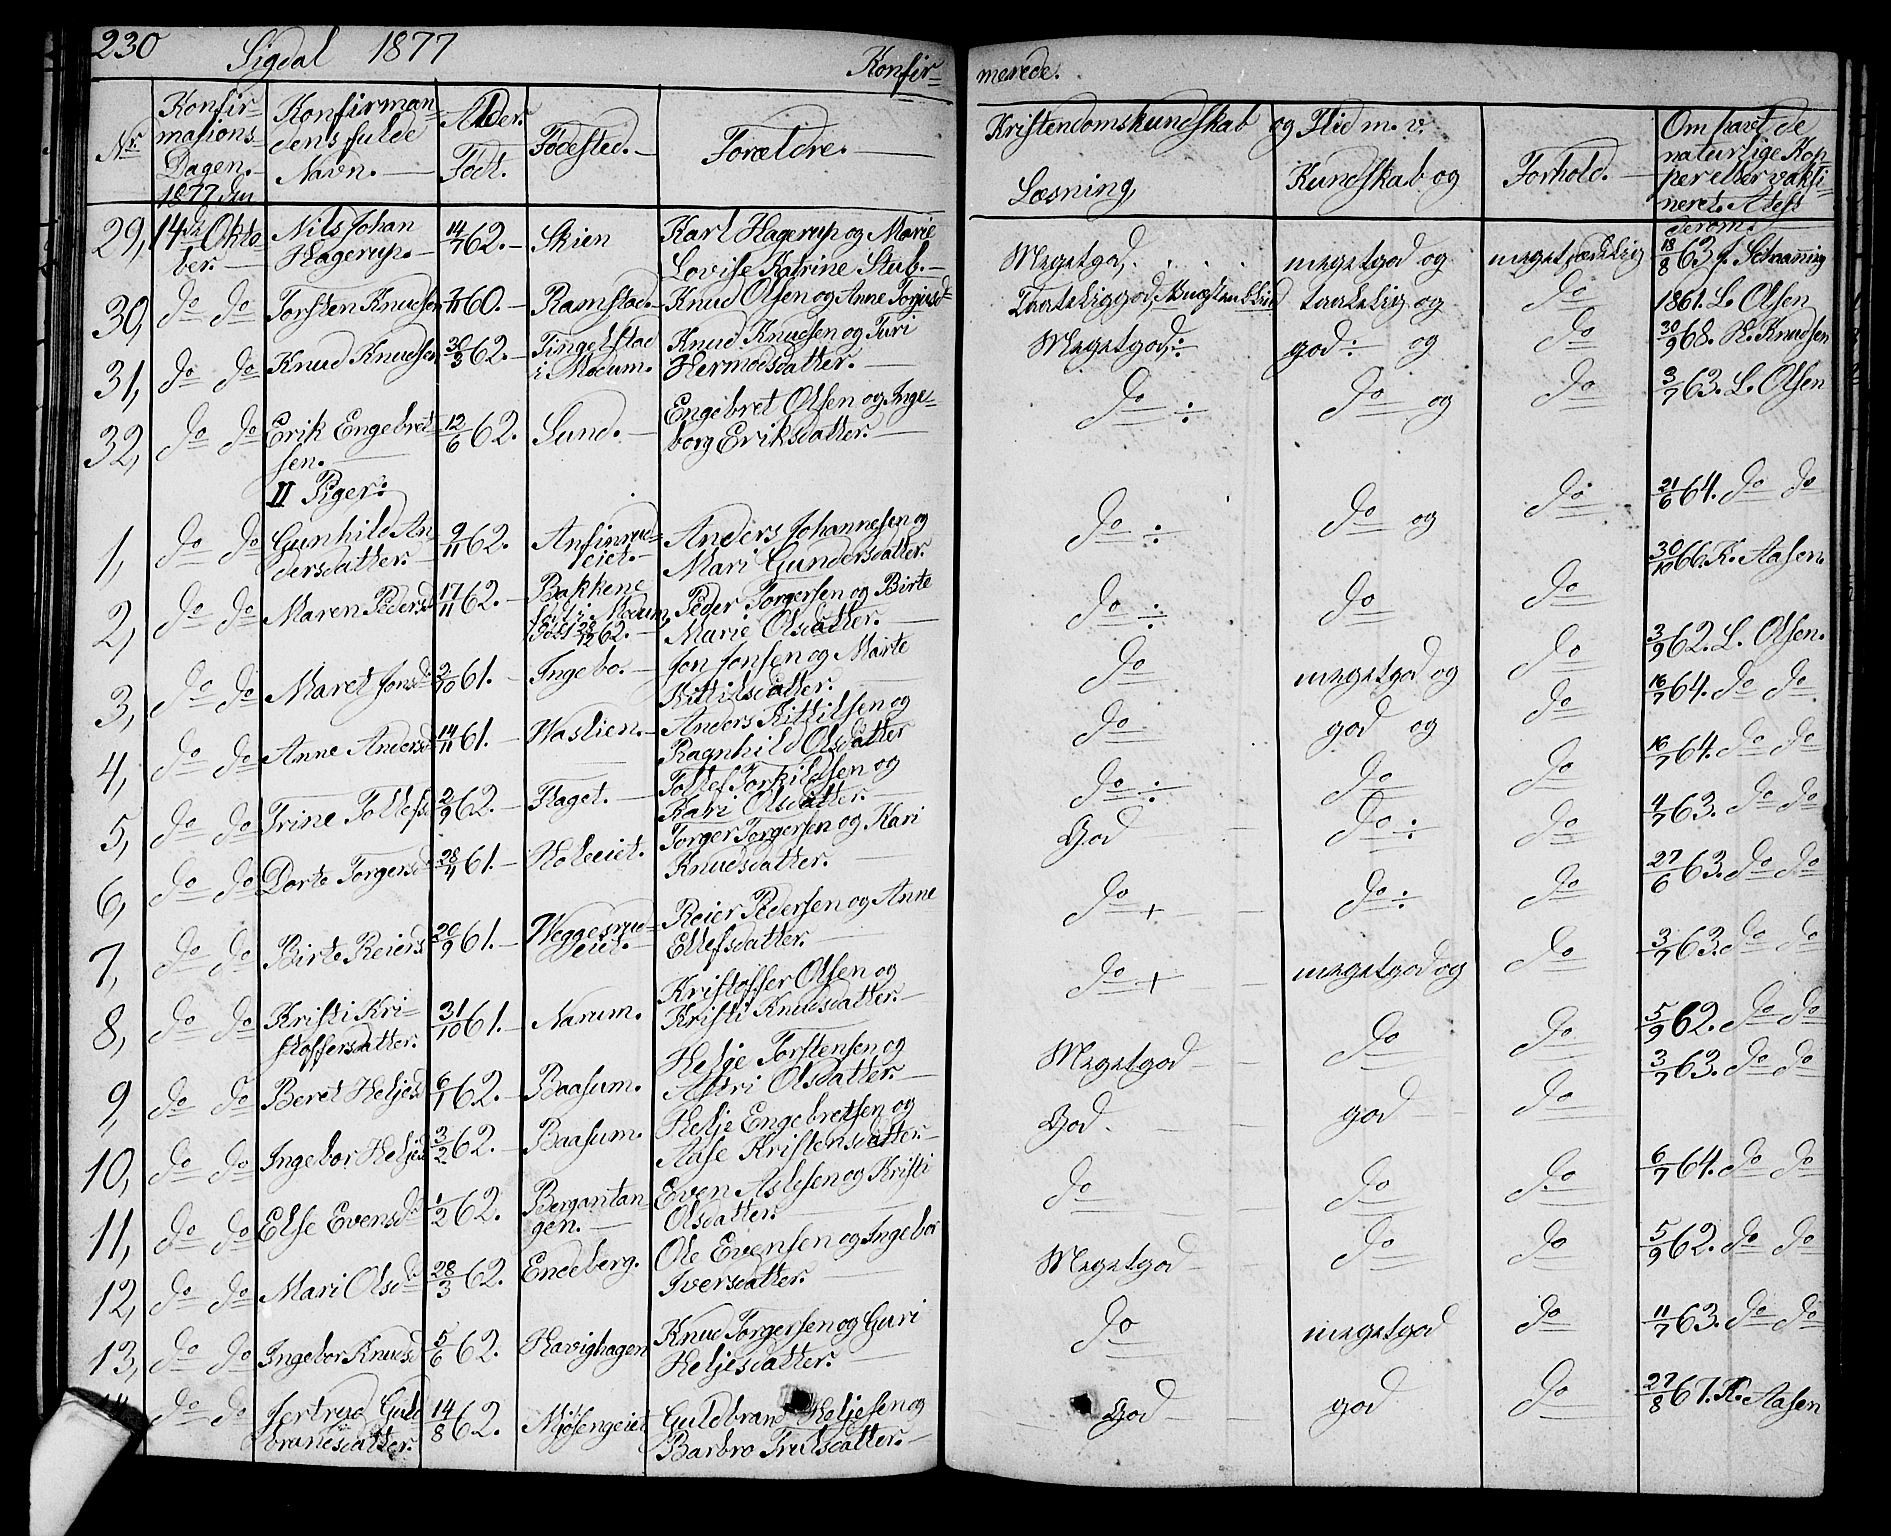 230 Sigdal 1877 Konfir-merede.
Nr. Konfirmations-Dagen. 1877 den Konfirmandens fulde Navn. Alder. Født. Fødested. Forældre. Kristendomskundskab og Flid m. v. Læsning, Kundskab og Forhold. Om havt de naturlige Kopper eller vaksineret. Attest derom.
29, 14de Oktober. Nils Johan Hagerup. 14/7 62. Skien Karl Hagerup og Marie Lovise Katrine Stub. Megetgod, megetgod og meget sædelig 18/8 63 f. Schanning
30, do do Torsten Knudsen 7/11 60. Ramstad. Knud Olsen og Anne Torjusd Taaleliggod, taalelig og do 1861. L. Olsen
31, do do Knud Knudsen 30/3 62. Tingelstad i Modum. Knud Knudsen og Turi Hermodsdatter. Megetgod ÷ god ÷ og do 30/9 68. K. Knudsen
32, do do Erik Engebretsen. 12/6 62. Sund. Engebret Olsen og Ingeborg Eriksdatter. do ÷ do og do 3/7 63. L. Olsen
II Piger:
1, do do Gunhild Andersdatter. 9/11 62. Anfinrudeiet. Anders Johannesen og Mari Gundersdatter. do ÷ do og do 21/6 64. do do
2, do do Maren Pedersd 17/11 62. Bakkene i Modum, døbt 28/12 62. Peder Torgersen og Birte Marie Olsdatter. do ÷ do do 30/10 66. K. Aasen.
3, do do Maret Jonsd 2/10 61. Ingebo. Jon Jonsen og Marte Kittilsdatter. do megetgod og do 3/9 62. L. Olsen.
4, do do Anne Andersd 14/11 61. Haslien. Anders Kittilsen og Ragnhild Olsdatter do god og do 16/7 64. do do
5, do do Trine Tollefsd 2/9 62. Flaget. Tollef Torkildsen og Kari Olsdatter. do ÷ do do 16/7 64. do do
6, do do Dorte Torgersd 28/4 61. Holeeiet. Torger Torgersen og Kari Knudsdatter. God do ÷ do 4/7 63. do do
7, do do Birte Reiersd 20/9 61. Weggesrudeiet. Reier Pedersen og Anne Ellefsdatter. do + do ÷ do 27/6 63. do do
8, do do Kristi Kristoffersdatter. 31/10 61. Narum. Kristoffer Olsen og Kristi Knudsdatter. do + megetgod og do 3/7 63. do do
9, do do Beret Heljesd 6/1 62. Baasum. Helje Torstensen og Astri Olsdatter. Megetgod do do 5/9 62. do do
10, do do Ingebor Heljesd 3/2 62. Baasum. Helje Engebretsen og Aase Kristensdatter. God. god do 3/7 63. do do
11, do do Else Evensd 1/2 62. Bergantangen. Even Aslesen og Kristi Olsdatter. do do do 6/7 64. do do
12, do do Mari Olsd 28/3 62. Endeberg. Ole Evensen og Ingebor Iversdatter. Megetgod do do 5/9 62. do do
13, do do Ingebor Knudsd 5/6 62. Havighagen Knud Torgersen og Guri Heljesdatter. do megetgod do 11/7 63. do do
do do Jertrud Guldbrandsdatter. 14/8 62. Mjøsengeiet Guldbrand Heljesen og Barbro Trulsdatter. God god do 27/8 67. K. Aasen